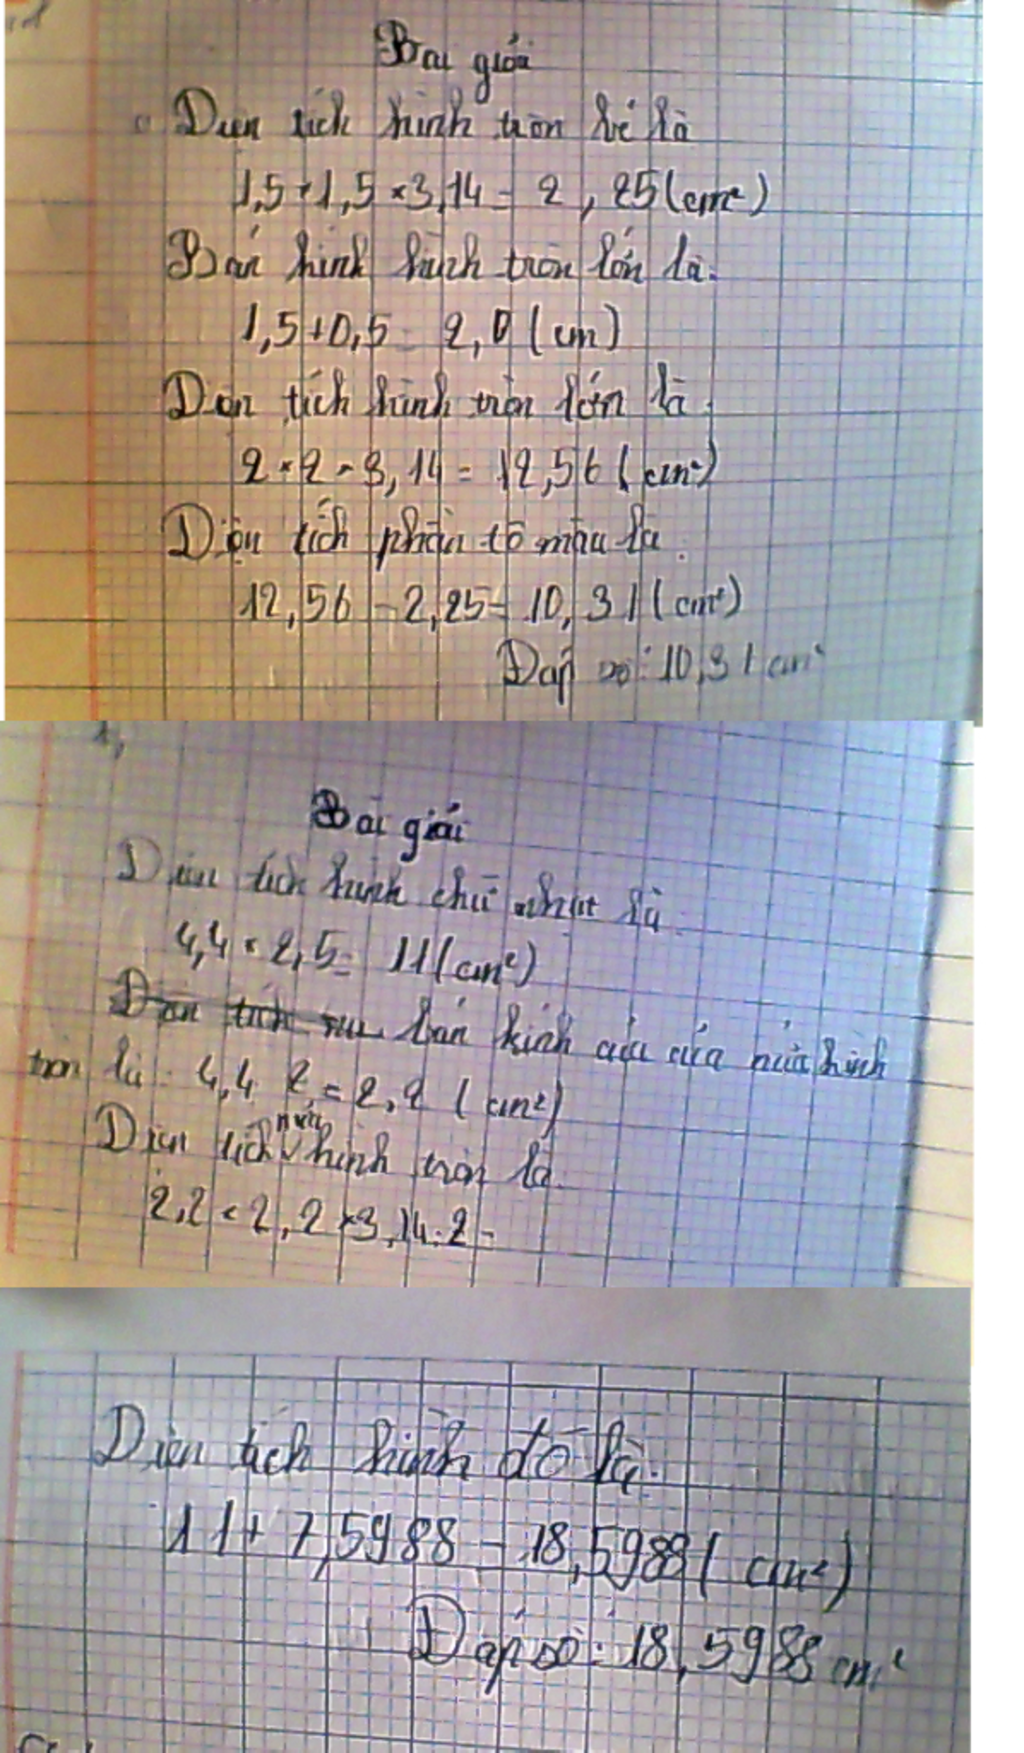 Bài giải
Diện tích hình tròn bé là
1,5 × 1,5 × 3,14 = 2,25 (cm²)
Bán kính hình tròn lớn là:
1,5 + 0,5 = 2,0 (cm)
Diện tích hình tròn lớn là:
2 × 2 × 3,14 = 12,56 (cm²)
Diện tích phần tô màu là:
12,56 - 2,25 = 10,31 (cm²)
Đáp số: 10,31 cm²
1,
Bài giải
Diện tích hình chữ nhật là:
4,4 × 2,5 = 11 (cm²)
Diện tích bán kính của của nửa hình
tròn là: 4,4 : 2 = 2,2 (cm²)
Diện tích nửa hình tròn là:
2,2 × 2,2 × 3,14 : 2 =
Diện tích hình đó là:
11 + 7,5988 = 18,5988 (cm²)
Đáp số: 18,5988 cm²